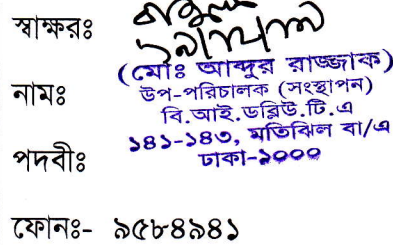 স্বাক্ষরঃ
(মোঃ আব্দুর রাজ্জাক)
নামঃ উপ-পরিচালক (সংস্থাপন)
বি.আই.ডব্লিউ.টি.এ
১৪১-১৪৩, মতিঝিল বা/এ
পদবীঃ ঢাকা-১০০০
ফোনঃ- ৯৫৮৪৯৪১